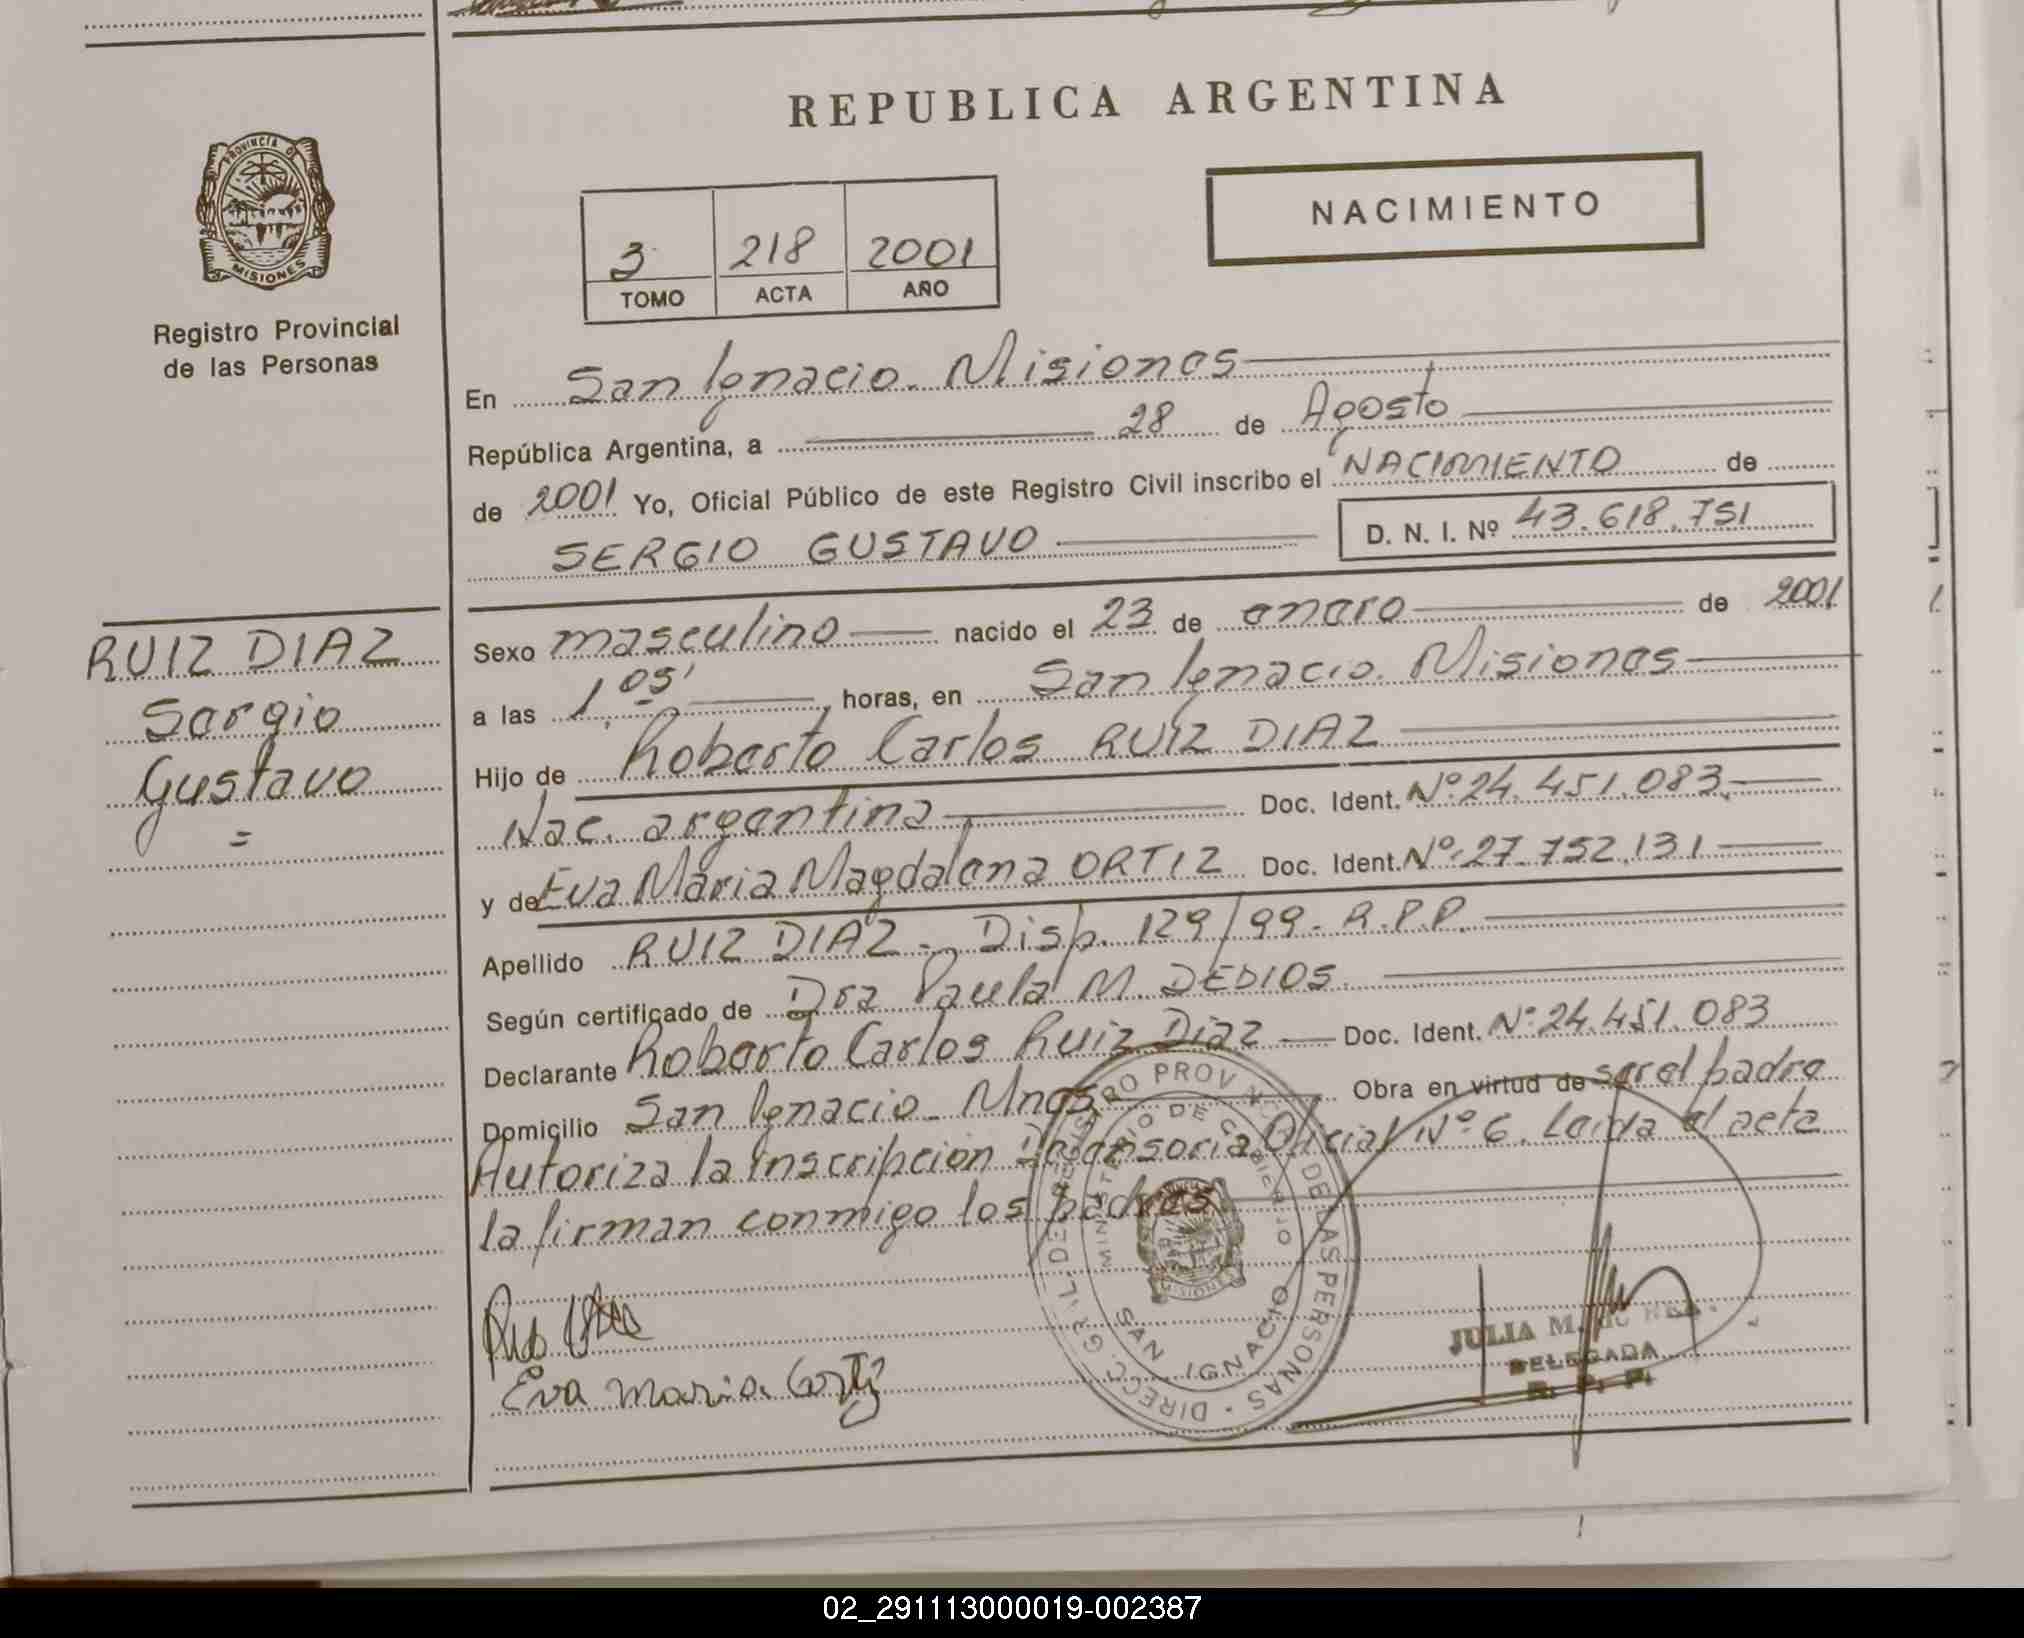 REPUBLICA ARGENTINA
PROVINCIA DE
MISIONES
Registro Provincial
de las Personas
NACIMIENTO
3 218 2001
TOMO ACTA AÑO
En San Ignacio. Misiones
República Argentina, a 28 de Agosto
de 2001 Yo, Oficial Público de este Registro Civil inscribo el NACIMIENTO de
SERGIO GUSTAVO D. N. I. Nº 43.618.751
RUIZ DIAZ
Sergio
Gustavo
=
Sexo masculino nacido el 23 de enero de 2001
a las 1,05' horas, en San Ignacio. Misiones
Hijo de Roberto Carlos RUIZ DIAZ
Nac. argentina Doc. Ident. Nº 24.451.083.
y de Eva Maria Magdalena ORTIZ Doc. Ident. Nº 27.752.131
Apellido RUIZ DIAZ - Disp. 129/99. R.P.P.
Según certificado de Dra Paula M. DEDIOS.
Declarante Roberto Carlos Ruiz Diaz Doc. Ident. Nº 24.451.083
Domicilio San Ignacio - Mnes. Obra en virtud de ser el padre
Autoriza la inscripción Defensoria Oficial Nº 6. Leida el acta
la firman conmigo los padres.
DIRECC. GR'L. DEL REGISTRO PROV DE LAS PERSONAS
MINISTERIO DE GOBIERNO
SAN IGNACIO
MISIONES
Eva Maria Ortiz
JULIA M.
DELEGADA
R. P. P.
02_291113000019-002387